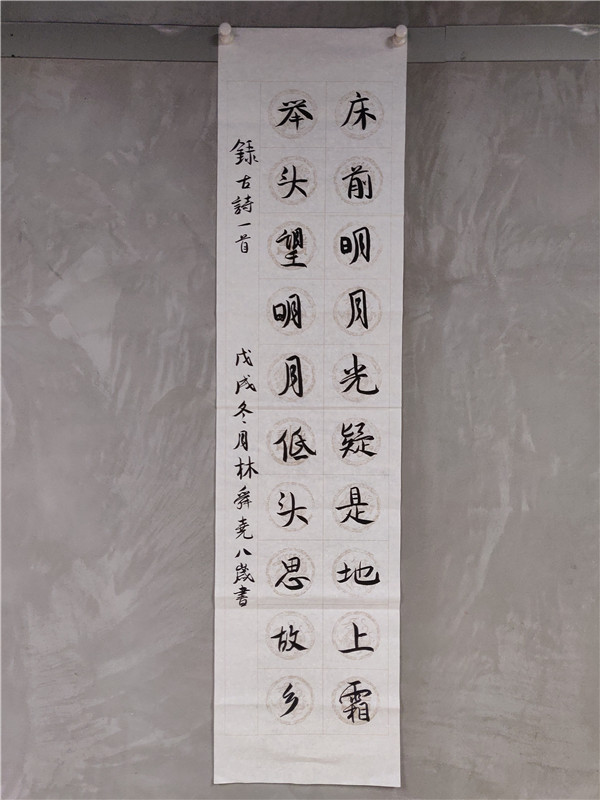 床前明月光疑是地上霜
举头望明月低头思故乡
録古詩一首
戊戌冬月林舜堯八歲書